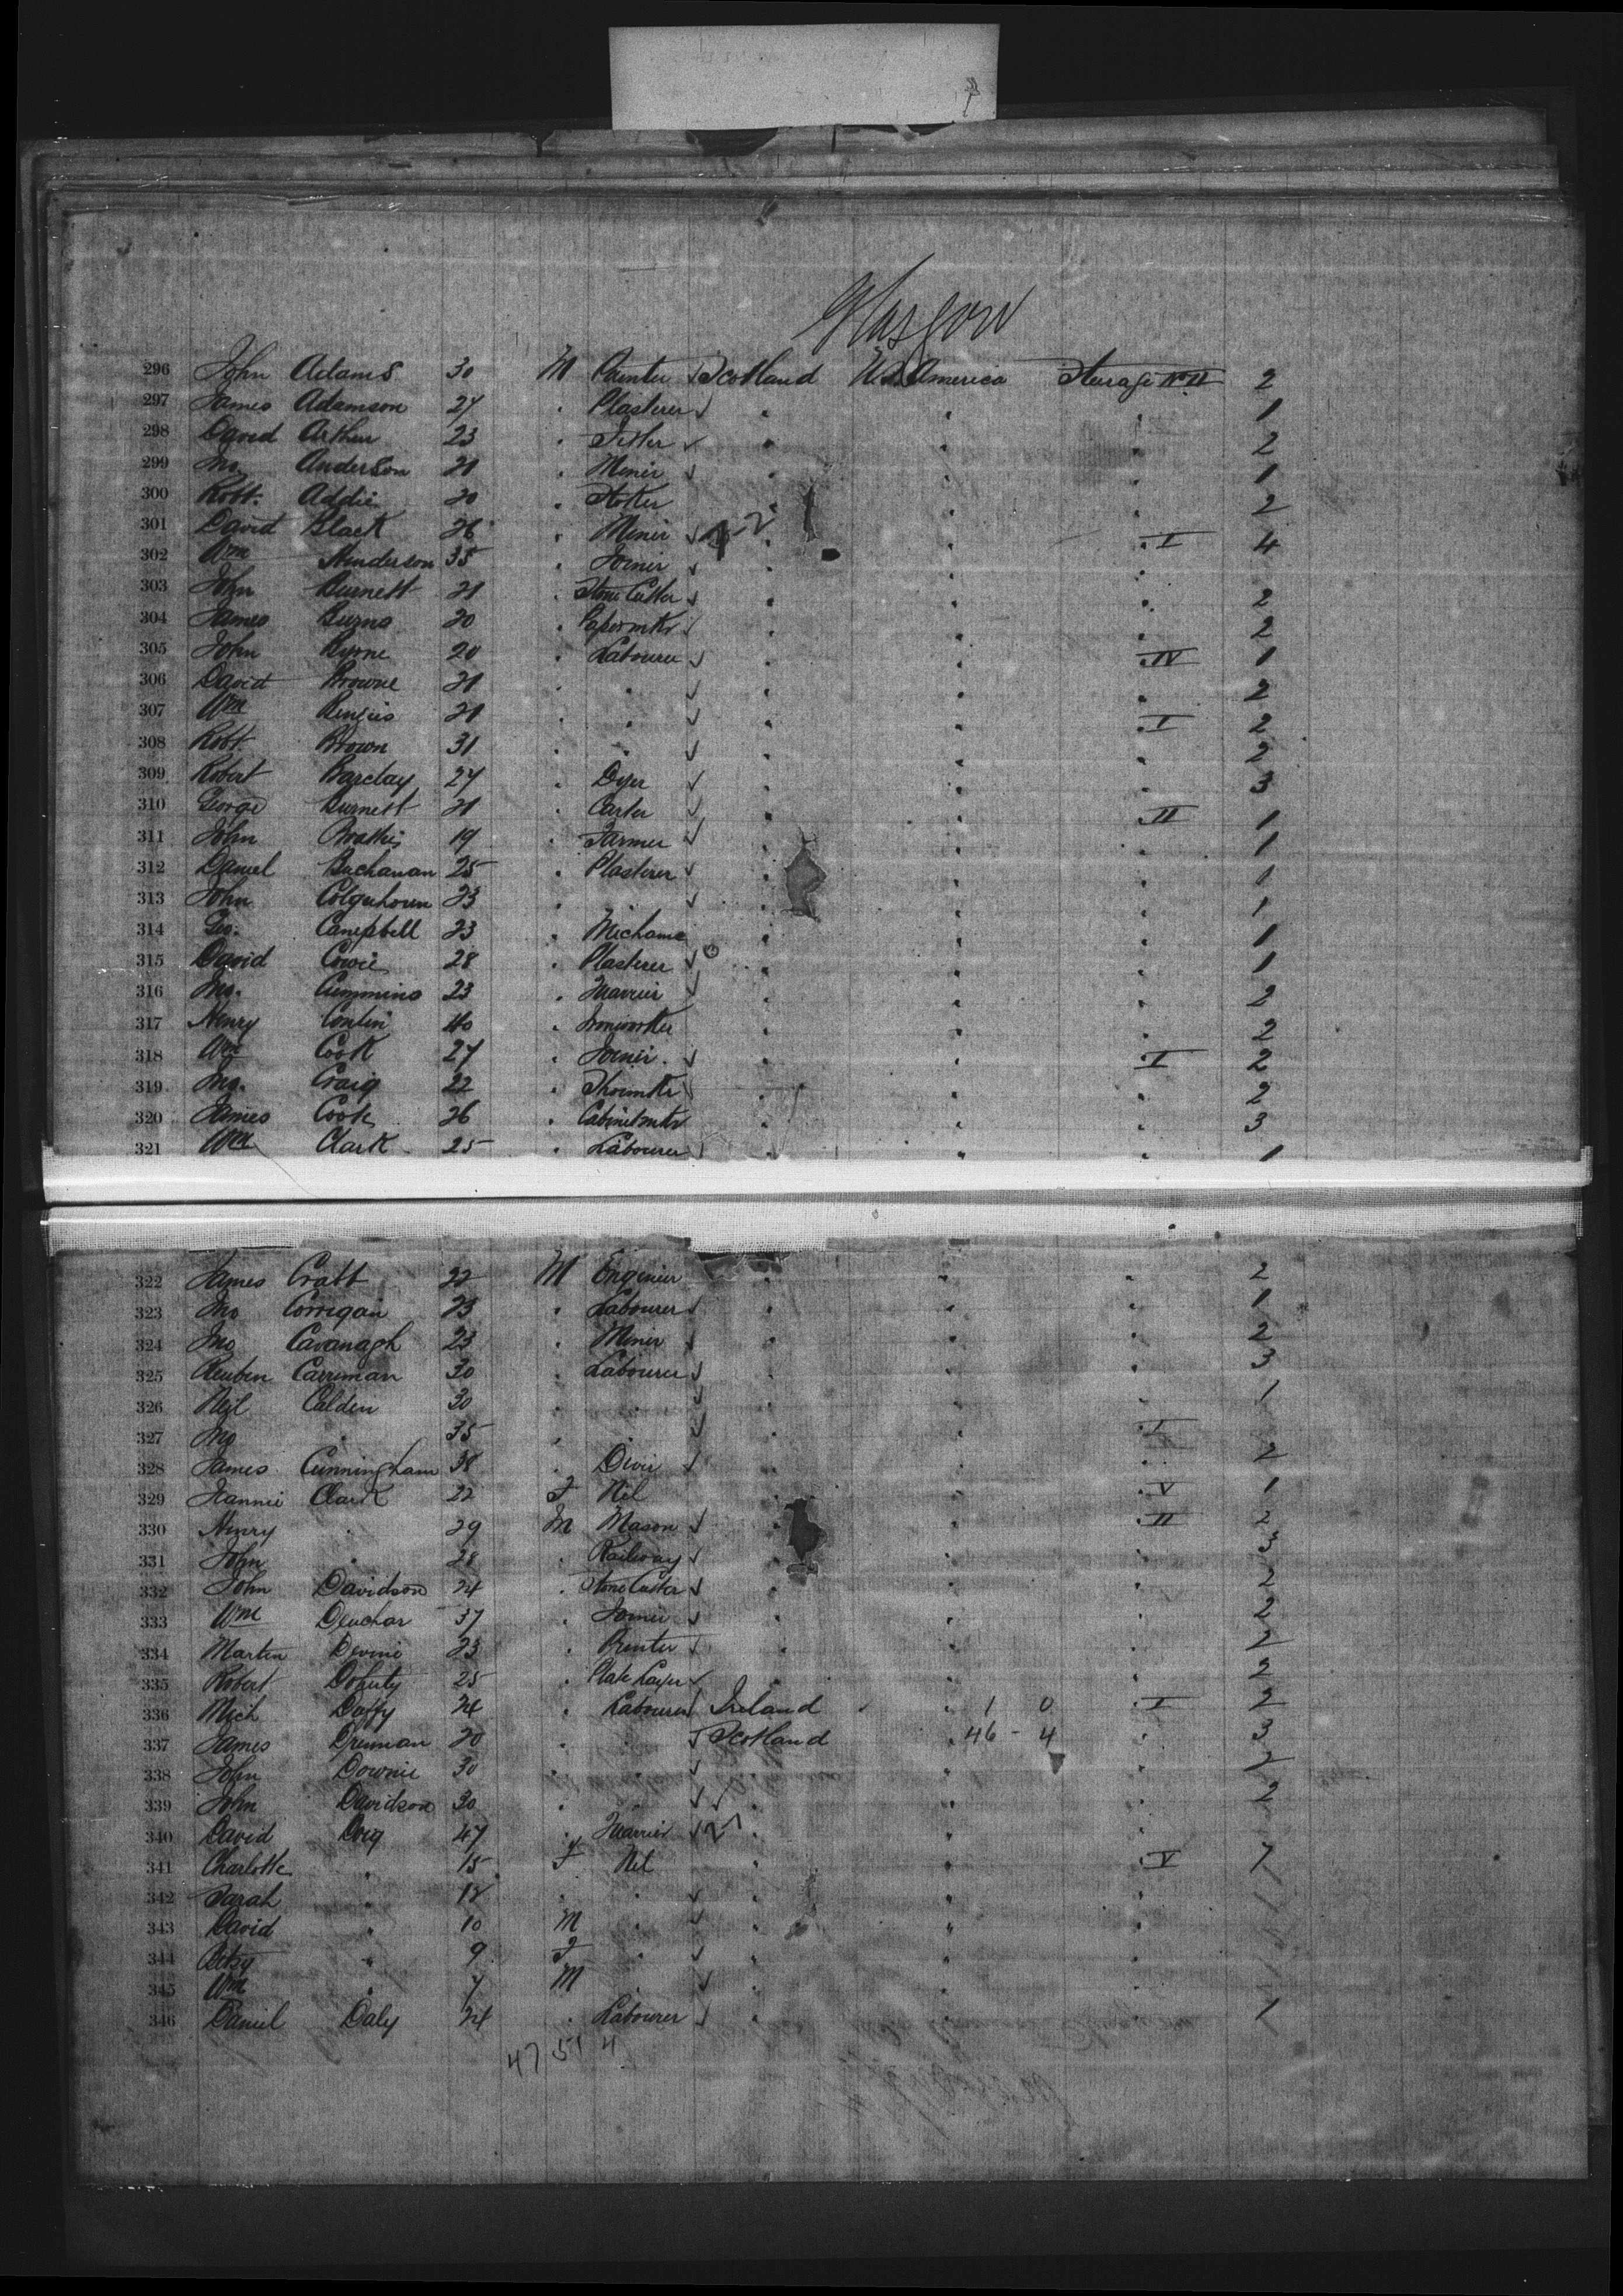 Glasgow
296 John Adams 30 M Painter Scotland U.S. America Steerage No II 2
297 James Adamson 27 " Plasterer " " " 1
298 David Arthur 23 " " " " 2
299 Jno. Anderson 21 " Miner " " " 1
300 Robt. Addie 20 " Stoker " " " 2
301 David Black 26 " Miner " " " I 4
302 Wm Henderson 35 " Joiner " " "
303 John Burnett 21 " Stone Cutter " " " 2
304 James Burns 20 " Papermkr " " " 2
305 John Byrne 20 " Labourer " " " IV 1
306 David Browne 21 " " " " " 2
307 Wm 21 " " " " " I 2
308 Robt. Brown 31 " " " " " 2
309 Robert Barclay 27 " Dyer " " " 3
310 George Burnett 21 " Carter " " " II 1
311 John 19 " Farmer " " " 1
312 Daniel Buchanan 25 " Plasterer " " " 1
313 John Colquhoun 23 " " " " " 1
314 Geo. Campbell 23 " Mechanic " " " 1
315 David Cowie 28 " Plasterer " " " 1
316 Jno. Cummins 23 " " " " 2
317 Henry Conlin 40 " Ironworker " " " 2
318 Wm Cook 27 " Joiner " " " I 2
319 Jno. Craig 22 " Shoemkr " " " 2
320 James Cook 26 " Cabinetmkr " " " 3
321 Wm Clark 25 " Labourer " " " 1
322 James Crabb 22 M Engineer " " " 2
323 Jno Corrigan 23 " Labourer " " " 1
324 Jno Cavanagh 23 " Miner " " " 2
325 Reuben Carriman 30 " Labourer " " " 3
326 Neil Calden 30 " " " " " 1
327 Jno " 35 " " " " " I
328 James Cunningham 38 " " " " 2
329 Jeannie Clark 22 F Nil " " " V 1
330 Henry " 29 M Mason " " " II 2
331 John " 28 " Railway " " " 3
332 John Davidson 24 " Stone Cutter " " " 2
333 Wm Deuchar 37 " Joiner " " " 2
334 Martin Devine 23 " Printer " " " 2
335 Robert Doherty 25 " Plate Layer " " " 2
336 Mich Duffy 24 " Labourer Ireland " " 1 0 " I 2
337 James Drennan 20 " " Scotland " 46 - 4 " 3
338 John Downie 30 " " " " " 2
339 John Davidson 30 " " " " " 2
340 David Doig 47 " " " "
341 Charlotte " 15 F Nil " " " V 7
342 Sarah " 12 " " " " "
343 David " 10 M " " " "
344 Betsy " 9 F " " " "
345 Wm " 7 M " " " "
346 Daniel Daly 24 " Labourer " " " 1
47 51 4